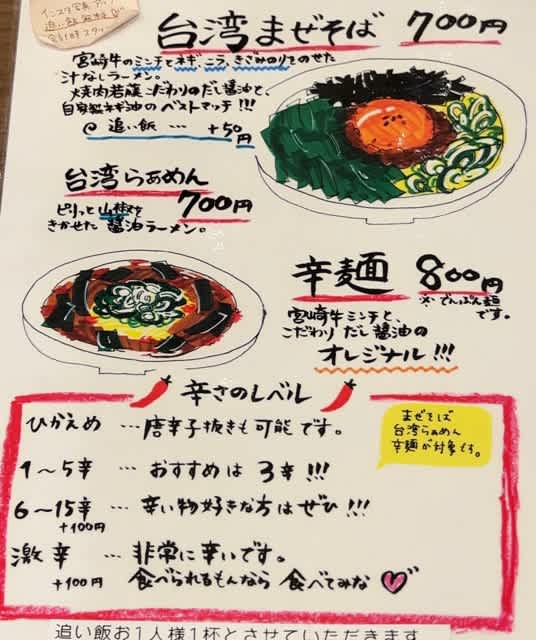 インスタ写真アップ
追い飯無料
台湾まぜそば 700円
宮崎牛のミンチとネギ、ニラ、きざみのりをのせた
汁なしラーメン。
焼肉若蔵こだわりのだし醤油と、
自家製ネギ油のベストマッチ!!!
@ 追い飯 … +50円
台湾らぁめん
700円
ピリッと山椒を
きかせた醤油ラーメン。
辛麺 800円
※でんぷん麺
です。
宮崎牛ミンチと、
こだわりだし醤油の
オレジナル!!!
辛さのレベル
ひかえめ …唐辛子抜きも可能です。
まぜそば
台湾らぁめん
辛麺が対象です。
1〜5辛 … おすすめは 3辛!!!
6〜15辛 … 辛い物好きな方はぜひ!!!
+100円
激辛 … 非常に辛いです。
+100円 食べられるもんなら 食べてみな
追い飯お1人様1杯とさせていただきます